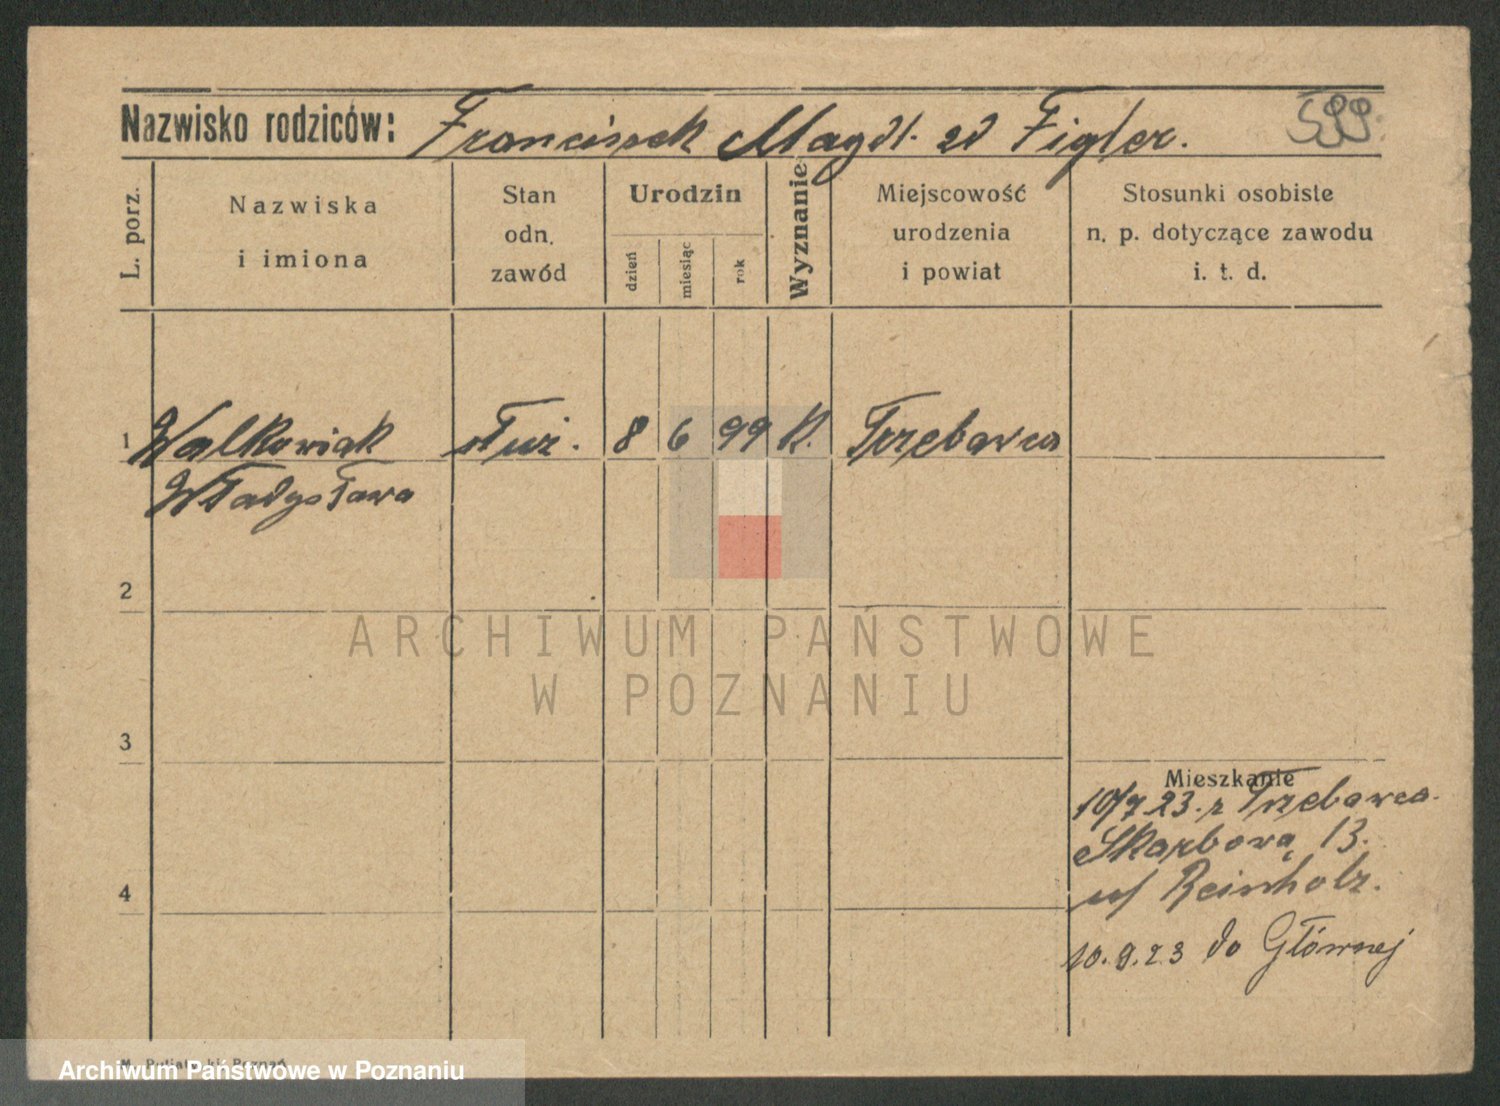 Nazwisko rodziców: Franciszek Magdl. zd Figler. 599.
L. porz.
Nazwiska
i imiona
Stan
odn.
zawód
Urodzin
dzień
miesiąc
rok
Wyznanie
Miejscowość
urodzenia
i powiat
Stosunki osobiste
n. p. dotyczące zawodu
i. t. d.
1 Walkowiak służ. 8 6 99 K. Trzebawea
Władysława
2
3
4
Mieszkanie
10/7 23. z Trzebawea.
Skarbową 13.
u/ Reinholz.
10.9.23 do Głównej
ARCHIWUM PAŃSTWOWE
W POZNANIU
Poznań
Archiwum Państwowe w Poznaniu